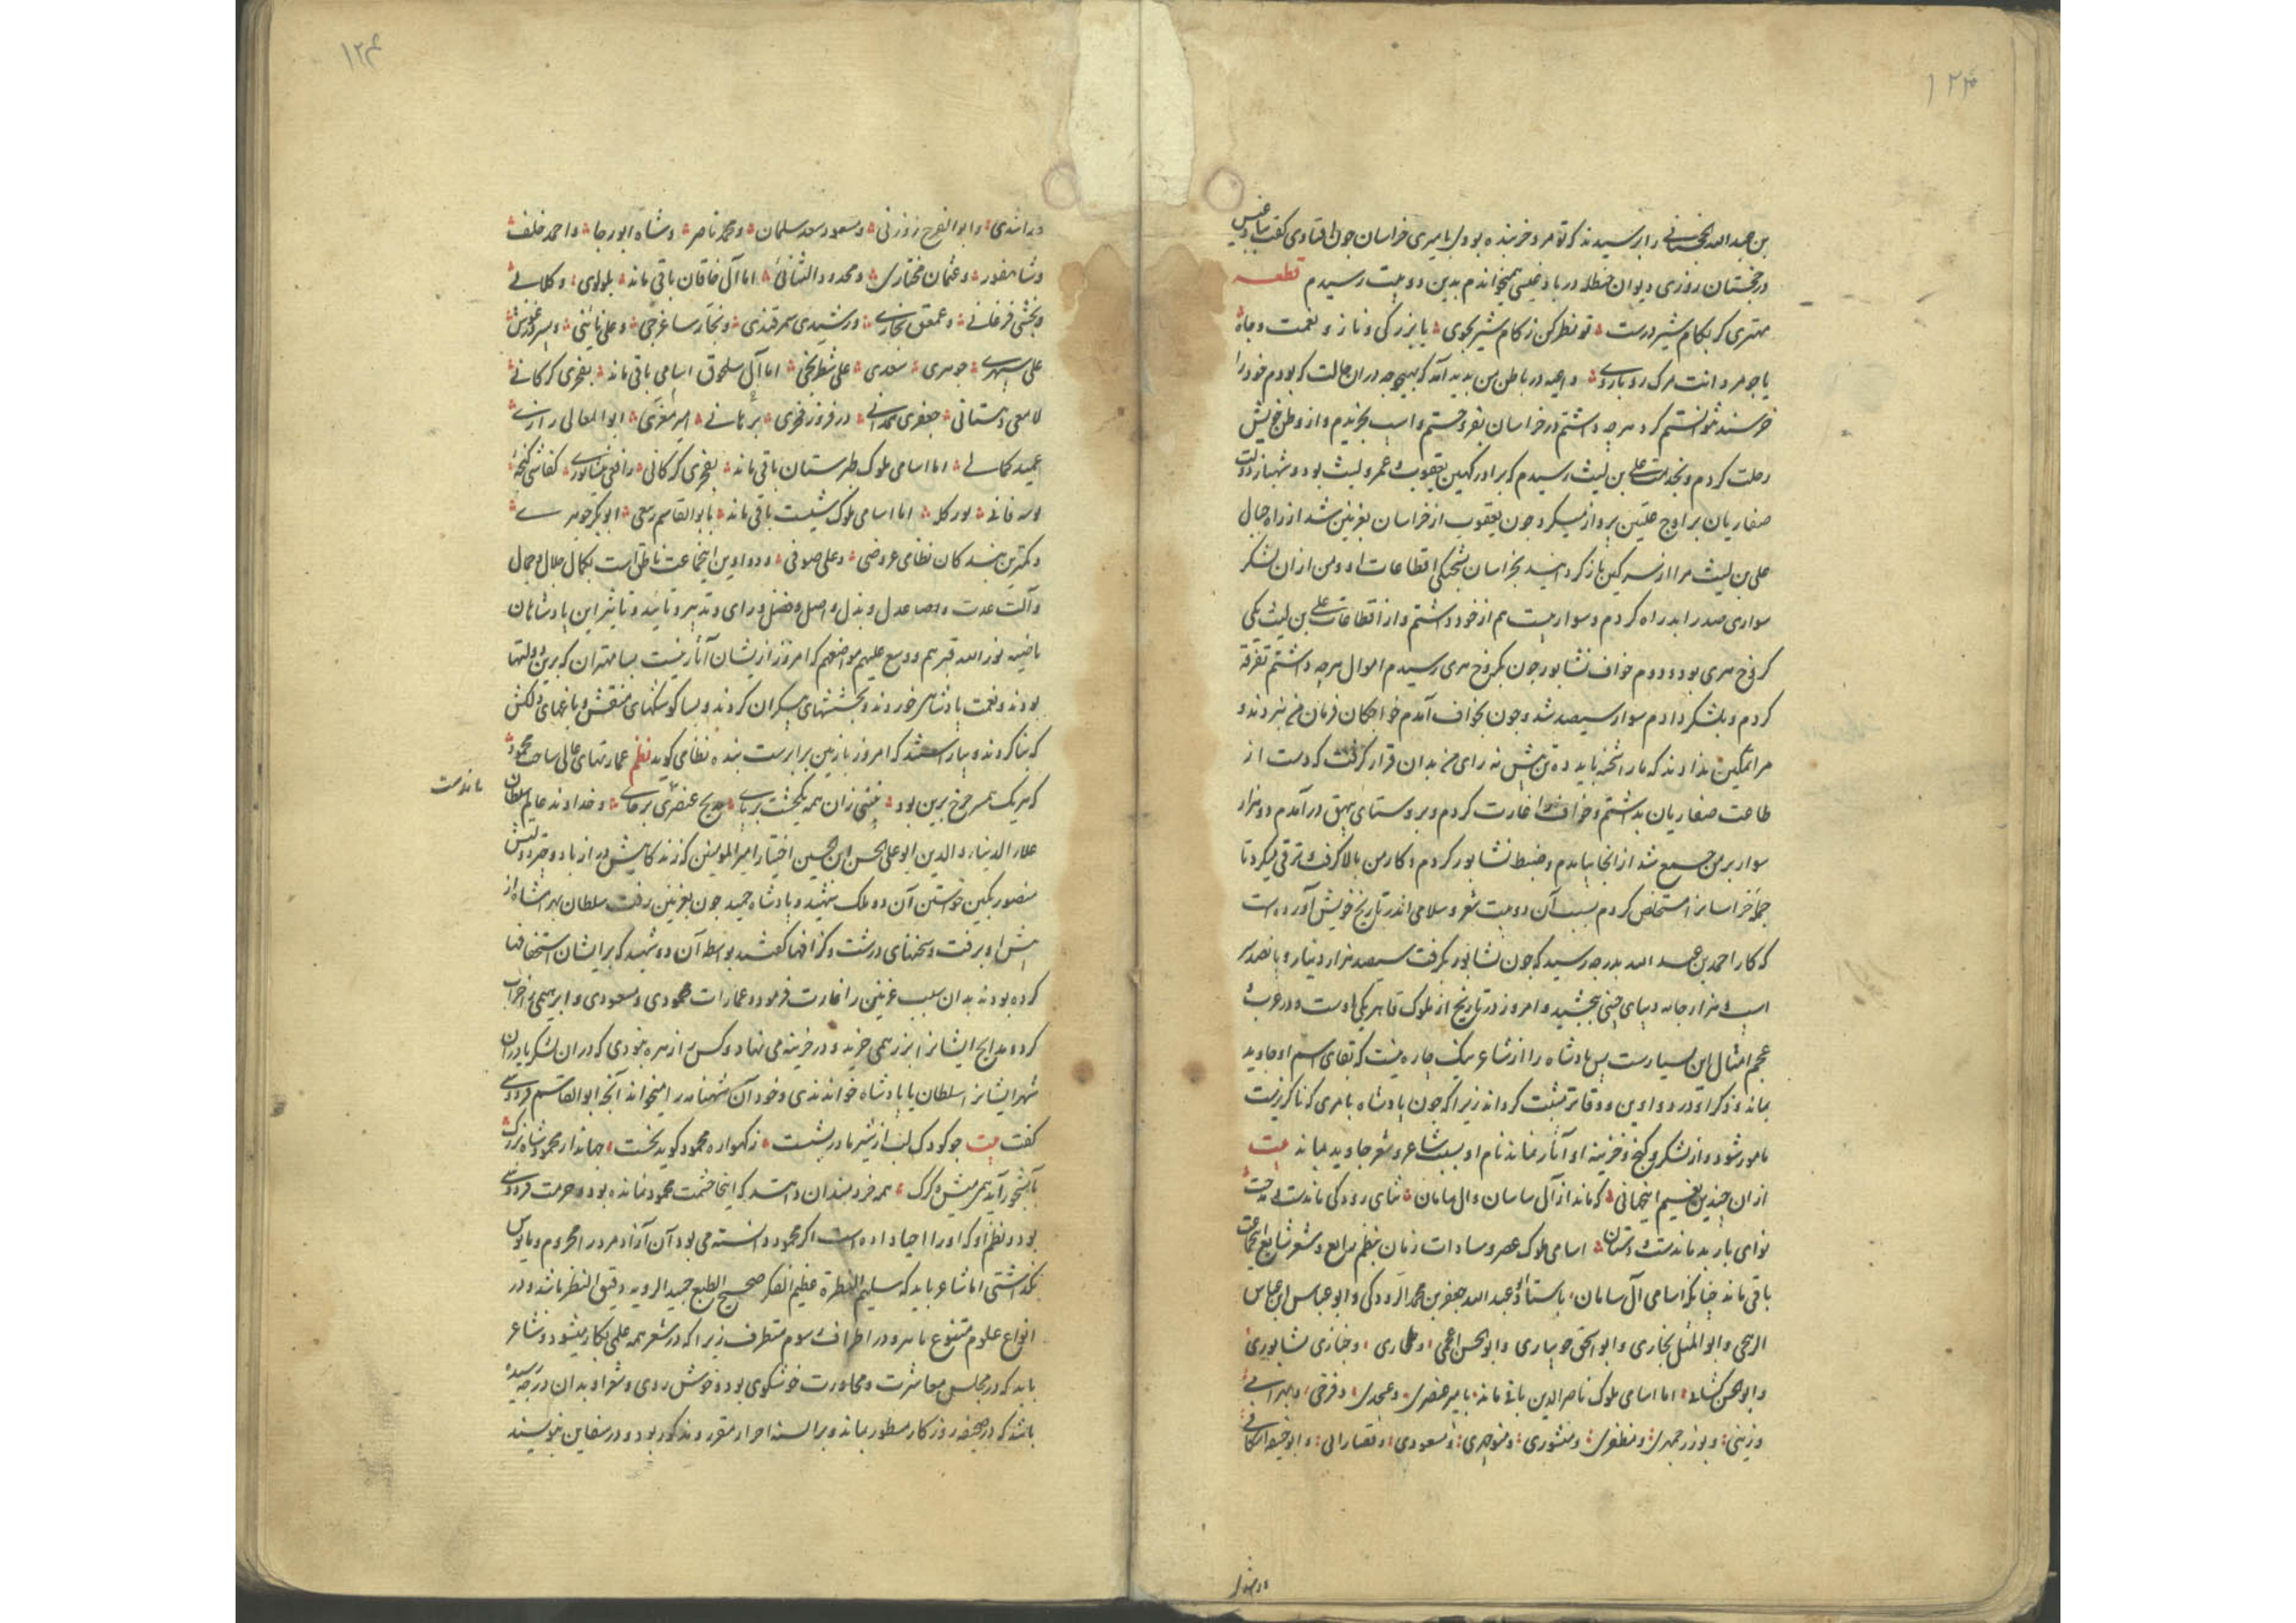 ۱۲۴
بن عبدالله الخجستانی را پرسیدند که تو مرد خربنده بودی بامیری خراسان چون افتادی گفت ببادغیس
در خجستان روزی دیوان حنظله بادغیسی همیخواندم بدین دو بیت رسیدم قطعه
مهتری کر بکام شیر درست تو نظر کن ز کام شیر بجوی یا بزرکی و ناز و نعمت و جاه
یا جو مردانت مرک رویاروی داعیه در باطن من بدید آمد که بهیچ وجه در ان حالت که بودم خود را
خرسند نتوانستم کرد هرچه داشتم در خراسان بفروختم و اسپ بخریدم و از وطن خویش
رحلت کردم و بخدمت علی بن لیث رسیدم که برادر کهین یعقوب و عمرو لیث بود و شهباز دولت
صفاریان بر اوج علیین پرواز میکرد جون یعقوب از خراسان بغزنین شد از راه جبال
علی بن لیث مرا از باز کردانید بخراسان بشحنکی اقطاعات او و من از ان لشکر
سواری صد را بدراه کردم و سوار بیست هم از خود داشتم و از اقطاعات علی بن لیث یکی
کروخ هری بود دوم خواف نشابور جون بکروخ هری رسیدم اموال هرچه داشتم تفرقه
کردم و بلشکر دادم سوار سیصد شد و جون بخواف آمدم خواجکان فرمان من نبردند و
مرا تمکین ندادند که ما را شحنه باید ده تن بیش نه رای من بدان قرار کرفت که دست از
طاعت صفاریان بداشتم و خواف را غارت کردم و بروستای بیهق در آمدم دو هزار
سوار بر من جمع شد از انجا بیامدم و ضبط نشابور کردم و کار من بالا کرفت و ترقی میکرد تا
جمله خراسانرا مستخلص کردم بسبب آن دو بیت شعر و سلامی اندر تاریخ خویش آورده است
که کار احمد بن عبد الله بدرجه رسید که جون نشابور بکرفت سیصد هزار دینار و پانصد سر
اسپ و هزار جامه دیبای چینی ببخشید و امروز در تاریخ از ملوک قاهر یکی اوست و در عرب و
عجم امثال این بسیارست پس پادشاه را از شاعر نیک چاره نیست که بقای اسم او جاوید
بماند و ذکر او در دواوین و دفاتر مثبت کرداند زیرا که جون پادشاه بامری که ناکزیرست
مامور شود و از لشکر و کنج و خزینه او آثار نماند نام او بسبب شاعر و شعر جاوید بماند بیت
از ان چندین نعیم اینجهانی که ماند از آل ساسان و ال سامان ثنای رودکی ماندست و مدحت
نوای باربد ماندست و دستان اسامی ملوک عصر و سادات زمان بنظم رایع و شعر شایع اینجماعت
باقی ماند چنانکه اسامی آل سامان باستاذ عبد الله جعفر بن محمد الرودکی و ابو عباس ابن عباس
الرنجی و ابو المثل بخاری و ابو اسحق جویباری و ابو الحسن اعجمی و طحاری و خبازی نشابوری
و ابو الحسن کسائی اما اسامی ملوک ناصر الدین باقی ماند بامیر عنصری و عسجدی و فرخی و بهرامی
و زینتی و بوزرجمهری و مظفری و منشوری و منوجهری و مسعودی و قصارامی و ابو حنیفه اسکافی
۱۲۴
و راشدی و ابو الفرج زوزنی و مسعود سعد سلمان و محمد ناصر و شاه ابو رجا و احمد خلف
و عثمان مختاری و مجدود السنائی اما آل خاقان باقی ماند بلولوی و کلابی
و بخشی فرغانی و عمعق بخاری و رشیدی سمرقندی و نجار ساغرجی و علی بانیذی و پسر درغوش
علی سپهری جوهری سعدی علی شطرنجی اما آل سلجوق اسامی باقی ماند بفخری کرکانی
لامعی دهستانی جعفری همدانی در فیروز فخری برهانی امیر معزی ابو المعالی رازی
عمید کمالی اما اسامی ملوک طبرستان باقی ماند بقمری کرکانی رافعی نشابوری کفائی کنجه
کوسه فالی بورکله اما اسامی ملوک باقی ماند بابو القاسم رفیعی ابو بکر جوهری
و کمترین بندکان نظامی عروضی و علی صوفی و دواوین اینجماعت ناطق است بکمال جلال و جمال
و آلت عدت و عدل و بذل و اصل و فضل و رای و تدبیر و تایید و تاثیر این پادشاهان
ماضیه نور الله قبرهم و وسع علیهم مواضعهم که امروز ازیشان آثار نیست بسا مهتران که برین دولتها
بودند و نعمت پادشاهی خوردند و بخششهای بیکران کردند و بسا کوشکهای منقش و باغهای دلکش
که بنا کردند و بیاراستند که امروز با زمین برابرست بنده نظامی کوید نظم عمارتهای عالی ساخت محمود
که هر یک همسر جرخ برین بود نبینی زان همه یکخشت برپای مدیح عنصری برجای و خداوند عالم سلطان
ماندست
علاء الدنیا و الدین ابو علی الحسن ابن الحسین اختیار امیر المومنین که زندکانیش دراز باد و چتر دولتش
منصور بکین خواستن آن دو ملک شهید و پادشاه حمید جون بغزنین رفت سلطان بهرامشاه از
پیش او برفت و سخنهای درشت و کزافها کفتند بواسطه آن دو شهید که بر ایشان استخفافها
کرده بودند بدان سبب غزنین را غارت فرمود و عمارات محمودی و مسعودی و ابرهیمی خراب
کرد و مدایح ایشانرا بزر همی خرید و در خزینه می نهاد و کس را زهره نبودی که در ان لشکر یا در ان
شهر ایشانرا سلطان یا پادشاه خواندندی و خود آن شهنامه را میخواند آنجه ابو القاسم فردوسی
کفت بیت جو کودک لب از شیر مادر بشست ز کهواره محمود کوید نخست جهاندار محمود شاه بزرک
بآبشخور آید همی میش و کرک همه خردمندان دانند که اینجا حشمت محمود نمانده بود و حرمت فردوسی
بود و نظم او که او را احیا داده است اکر محمود دانسته می بود آن آزاد مرد را محروم و مایوس
نکذاشتی اما شاعر باید که سلیم الفطرة عظیم الفکر صحیح الطبع جید الرویه دقیق النظر باشد و در
انواع علوم متنوع ماهر و در اطراف رسوم متطرف زیرا که در شعر همه علمی بکار میشود و شاعر
باید که در مجلس معاشرت و محاورت خوشکوی بود و خوش روی و شعر او بدان درجه رسیده
باشد که در صحیفه روزکار مسطور بماند و بر السنه احرار مقرر و مذکور بود و در سفاین بنویسند